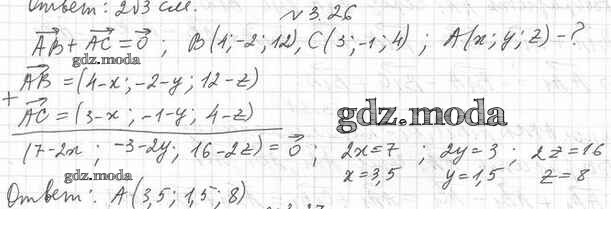 Ответ: 2√3 см.
№3.26
AB + AC = 0 ; B(4;-2;12), C(3;-1;4) ; A(x;y;z)-?
gdz.moda
AB = (4-x; -2-y; 12-z)
+
AC = (3-x; -1-y; 4-z)
gdz.moda
(7-2x; -3-2y; 16-2z) = 0 ; 2x=7 ; 2y=3 ; 2z=16
gdz.moda
x=3,5 y=1,5 z=8
Ответ: A(3,5; 1,5; 8)